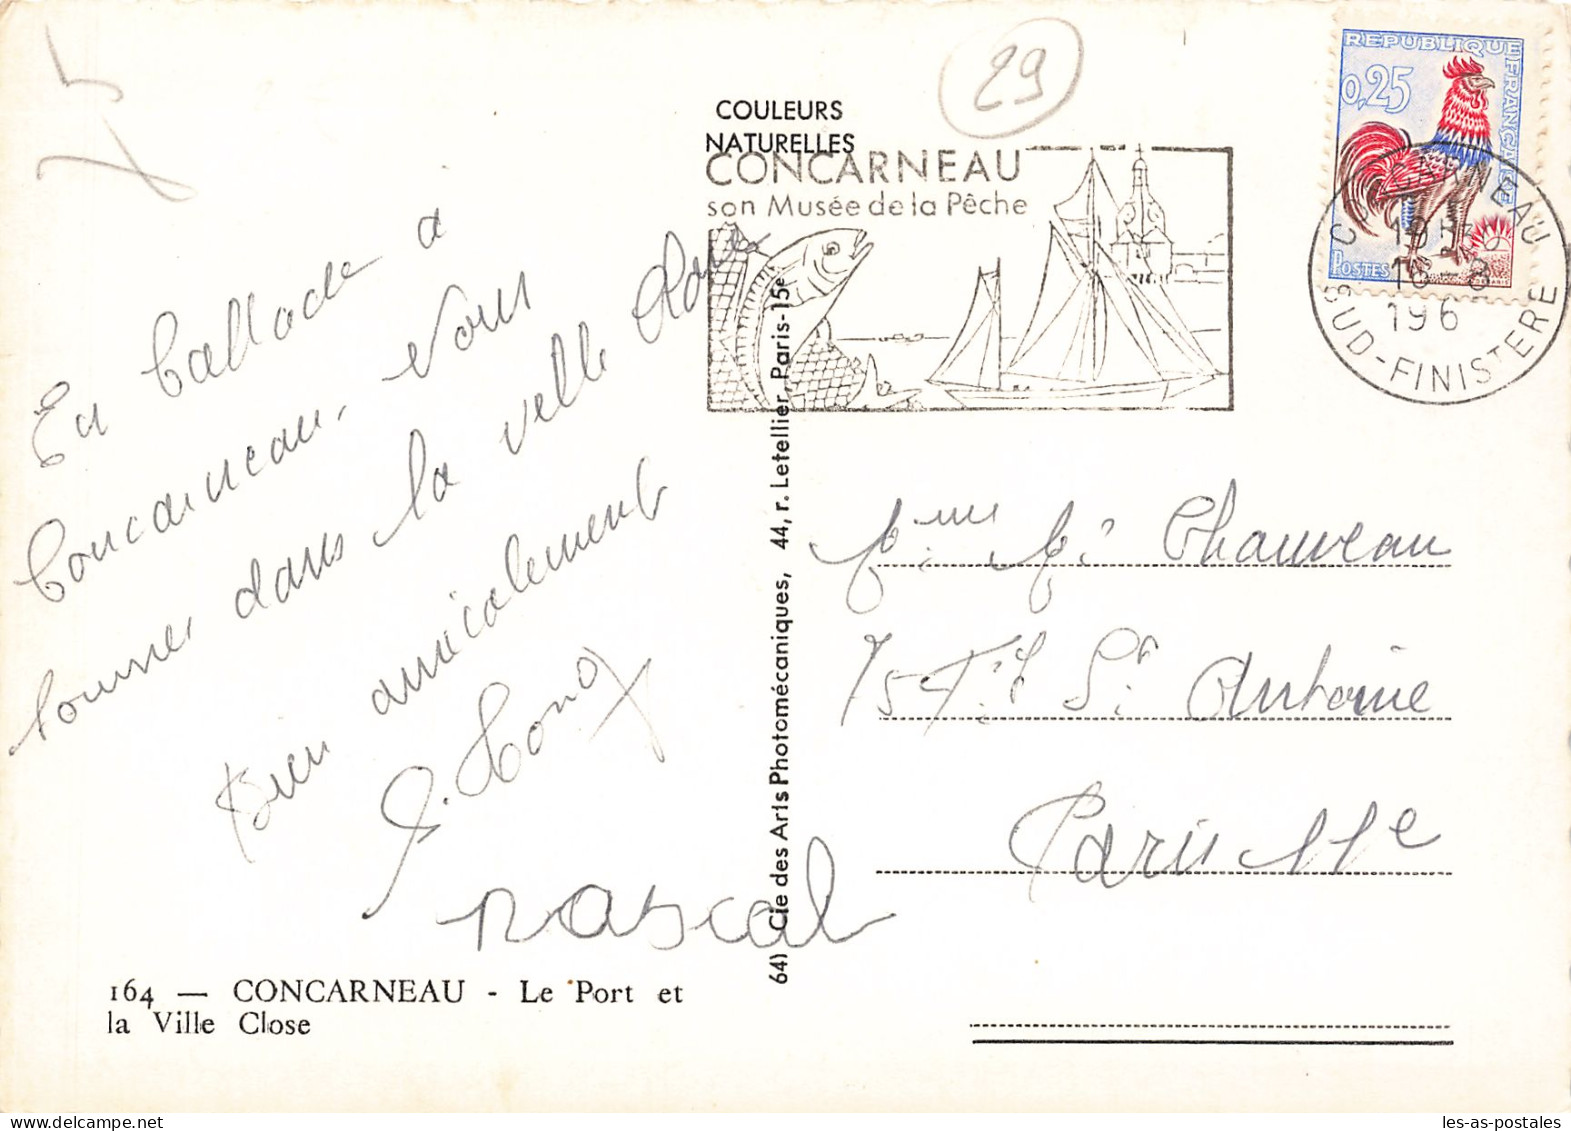 29
COULEURS
NATURELLES
CONCARNEAU
son Musée de la Pêche
REPUBLIQUE FRANÇAISE
0,25
POSTES
CONCARNEAU
16-8
196
SUD-FINISTERE
En ballade à
Concarneau, nous
sommes dans la ville close
Bien amicalement
Pascal
164 — CONCARNEAU - Le Port et
la Ville Close
64) Cie des Arts Photomécaniques, 44, r. Letellier, Paris-15e
Mme M. Chauveau
75 F.g St Antoine
Paris 11e
les-as-postales